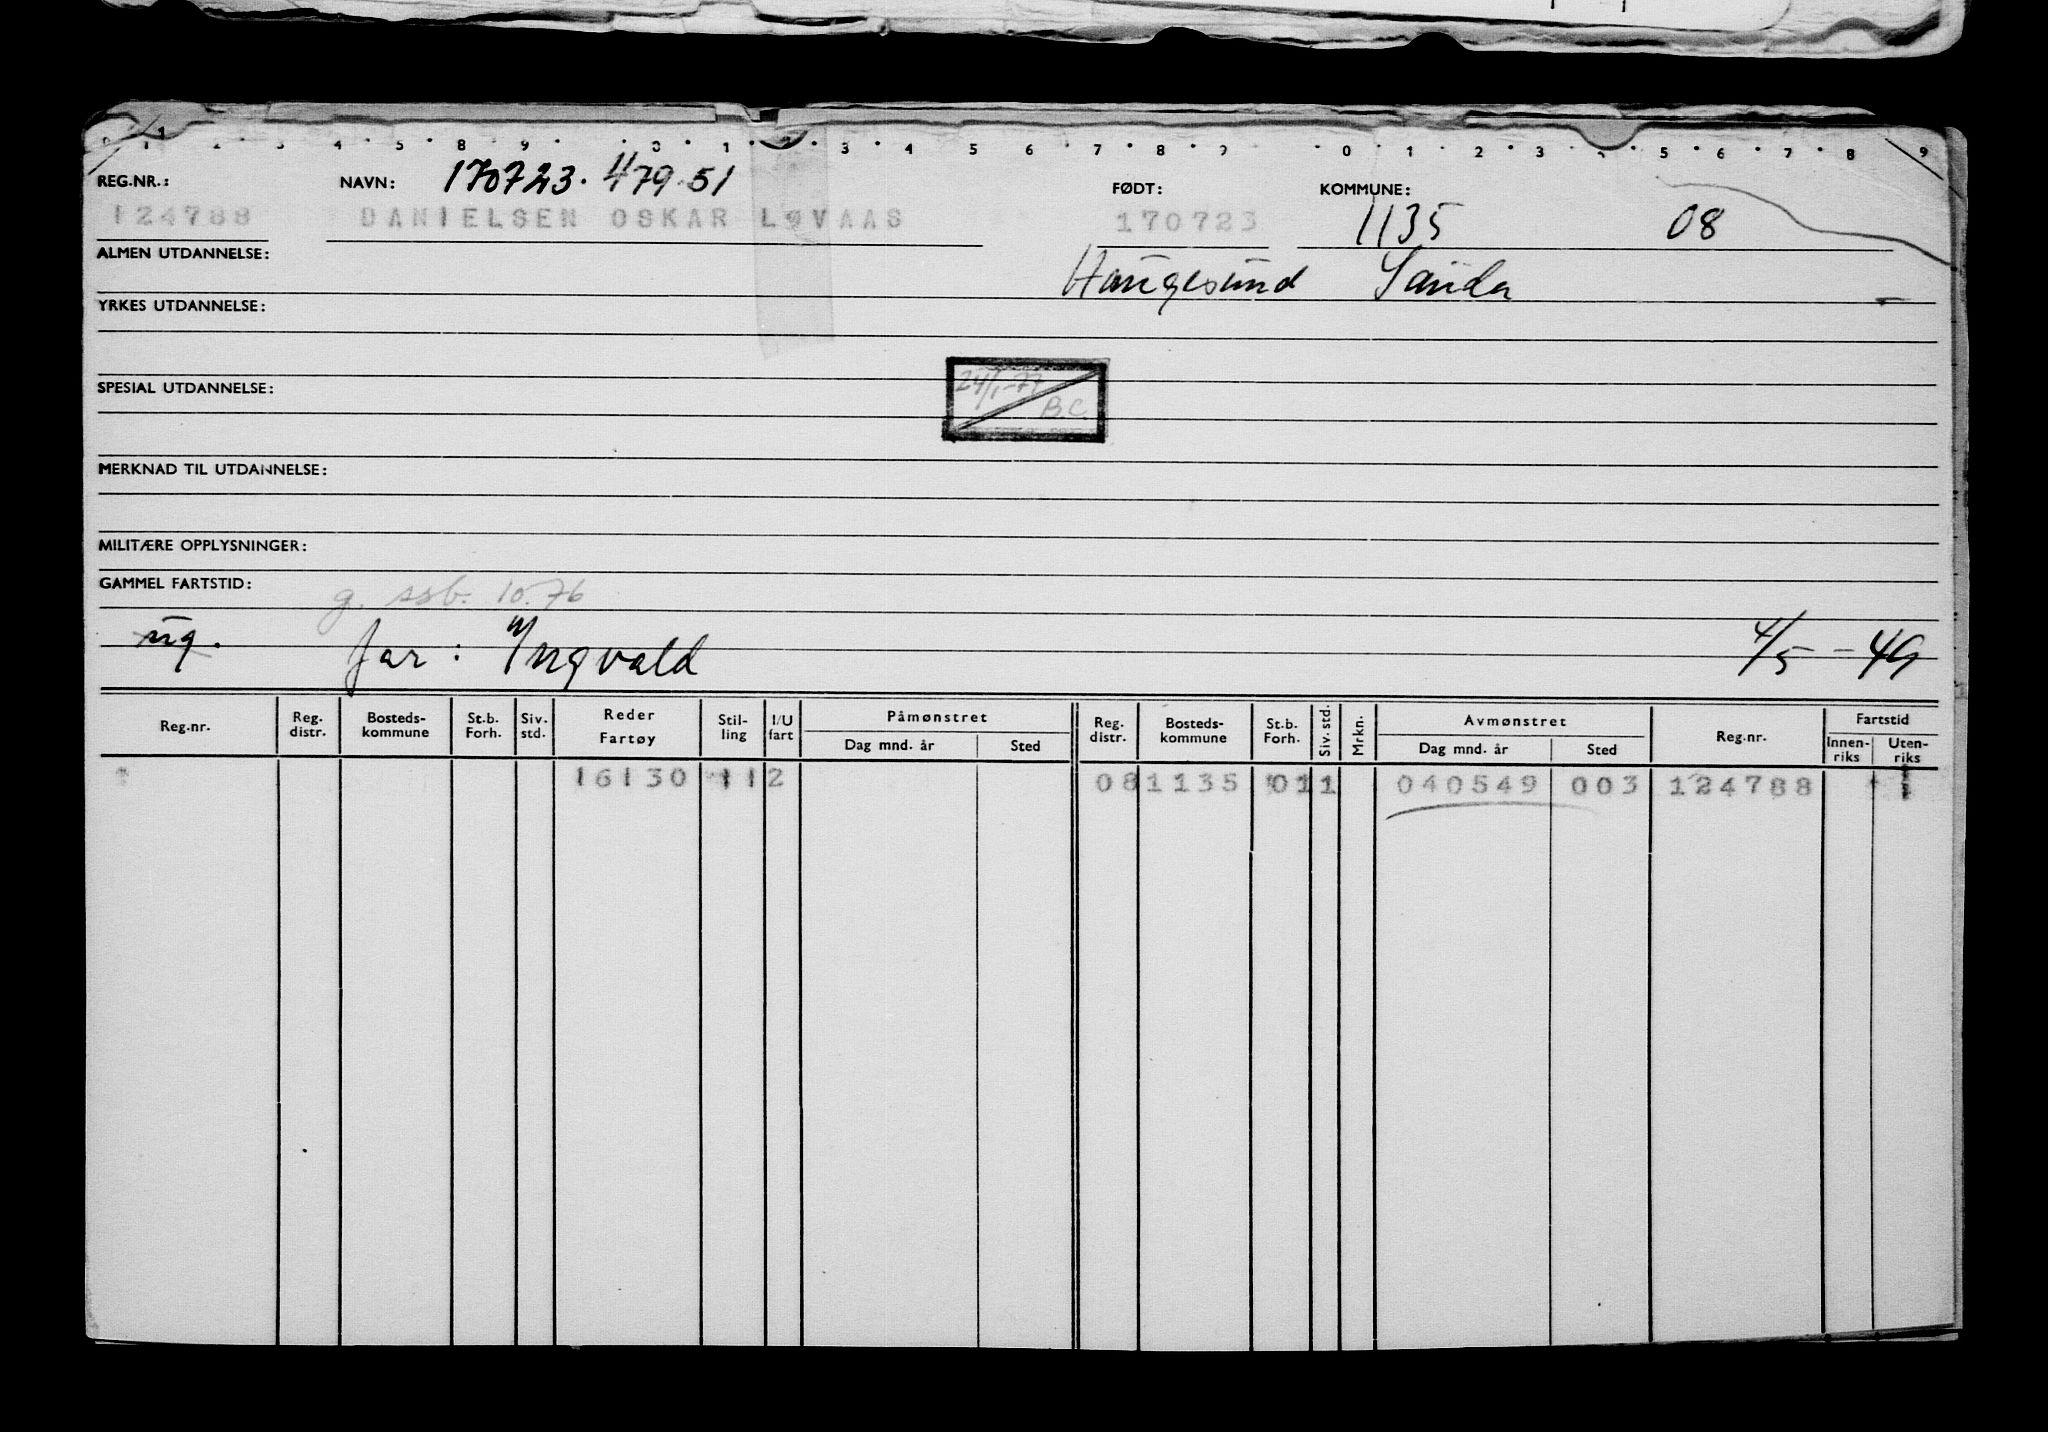 REG.NR.: NAVN: 170723. 479.51 FØDT: KOMMUNE:
124788 DANIELSEN OSKAR LØVAAS 170723 1135 08
ALMEN UTDANNELSE: Haugesund
YRKES UTDANNELSE:
SPESIAL UTDANNELSE:
24/1-77
B.C.
MERKNAD TIL UTDANNELSE:
MILITÆRE OPPLYSNINGER:
GAMMEL FARTSTID: g. ssb. 10.76
ug. far: Yngvald 4/5-49
Reg.nr. Reg. distr. Bosteds-kommune St.b. Forh. Siv. std. Reder Fartøy Stil-ling I/U fart Påmønstret Dag mnd. år Sted Reg. distr. Bosteds-kommune St.b. Forh. Siv. std. Mrkn. Avmønstret Dag mnd. år Sted Reg.nr. Fartstid Innen-riks Uten-riks
16130 112 081135 011 040549 003 124788 1